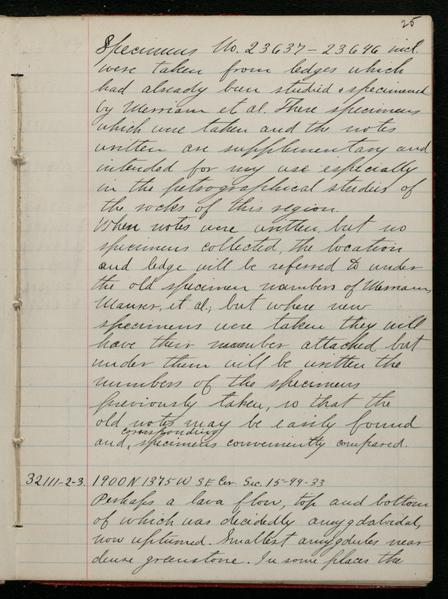 25
Specimens No. 23637-23646 incl
were taken from ledges which
had already been studied & specimened
by Merriam et al. These specimens
which were taken and the notes
written are supplementary and
intended for my use especially
in the petrographical studies of
the rocks of this region.
When notes were written but no
specimens collected, the location
and ledge will be referred to under
the old specimen numbers of Merriam,
et al, but where new
specimens were taken they will
have their number attached but
under them will be written the
numbers of the specimens
previously taken, so that the
old notes may be easily found
corresponding
and, specimens conveniently compared.
32111-2-3. 1900N 1375W SE Cor. Sec. 15-49-33
Perhaps a lava flow, top and bottom
of which was decidedly amygdaloidal,
now upturned. Smallest amygdules near
dense greenstone. In some places the